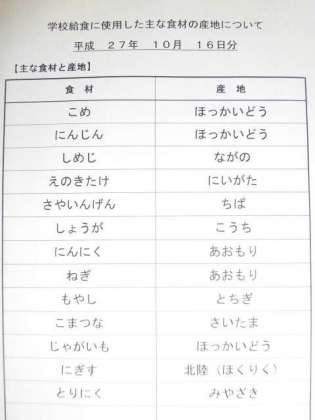 学校給食に使用した主な食材の産地について
平成 27年 10月 16日分
【主な食材と産地】
食 材 産 地
こめ ほっかいどう
にんじん ほっかいどう
しめじ ながの
えのきたけ にいがた
さやいんげん ちば
しょうが こうち
にんにく あおもり
ねぎ あおもり
もやし とちぎ
こまつな さいたま
じゃがいも ほっかいどう
にぎす 北陸（ほくりく）
とりにく みやざき